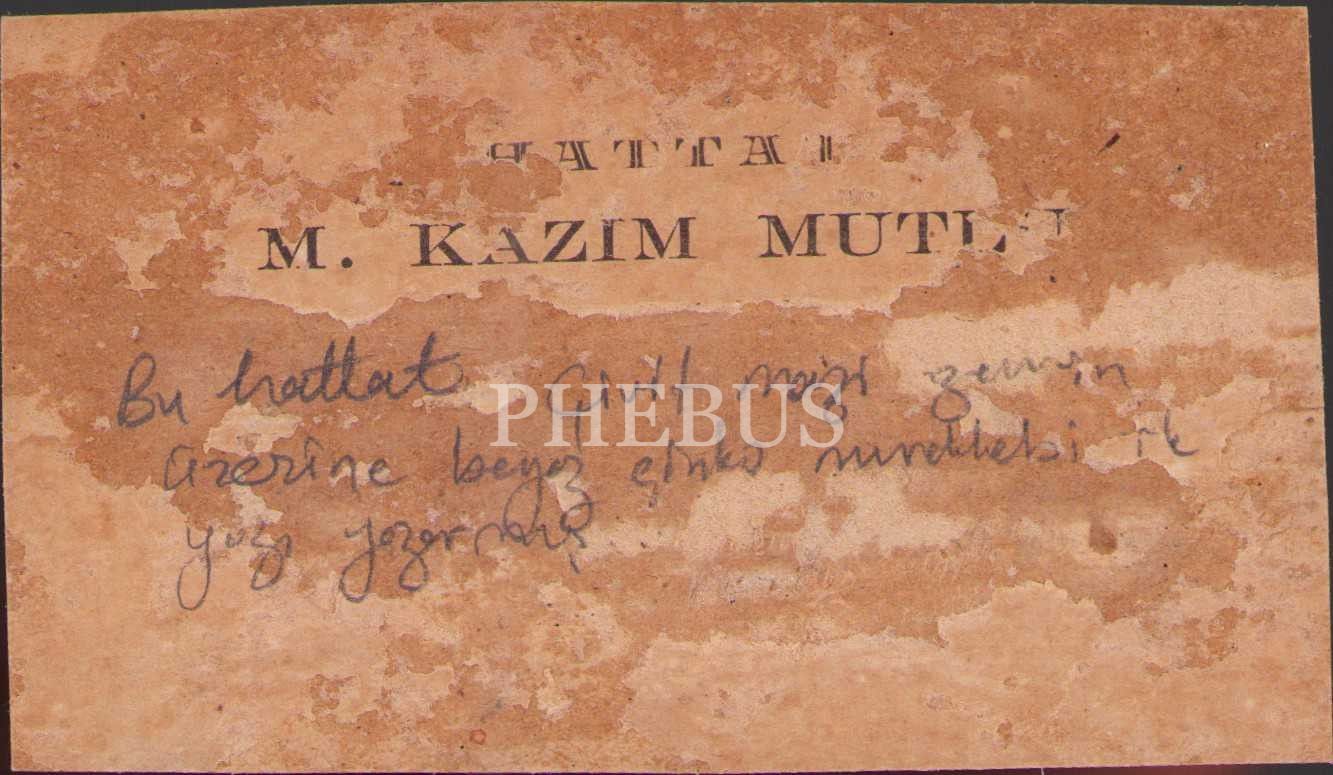 HATTAT
M. KAZIM MUTLU
Bu hattat Çivit mavi zemin
üzerine beyaz çinko mürekkebi ile
yazı yazarmış
PHEBUS